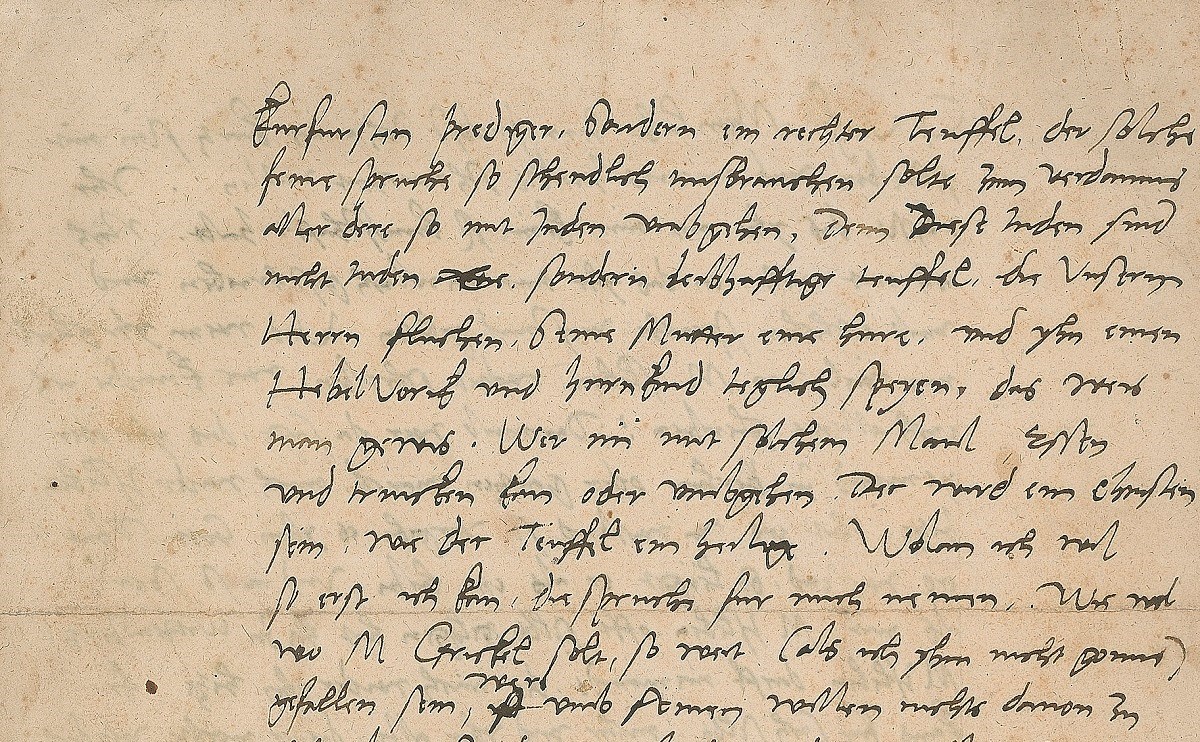 Kurfursten prediger, Sondern ein rechter Teuffel, der solche
seine spruche so schendlich misbrauchen solte zum verdamnis
aller dere so mit Juden umbgehen, Denn Diese Juden sind
nicht Juden sondern leibhafftige teuffel, die Unsern
Herrn fluchen, Seine Mutter eine hure, und yhn einen
Hebel Vorik und hurnkind teglich speyen, das weis
man gewis. Wer nu mit solchem Maul Essen
und trincken kan oder umbgehen Der wird ein Christen
sein, wie der Teuffel ein heilige. Wolan ich wil
so erst ich kan, die spruche fur mich nemen. Wie wol
wo M Grickel solt, so weit (als ich yhm nicht gonne)
gefallen sein, were umb seinen willen nichts davon zu